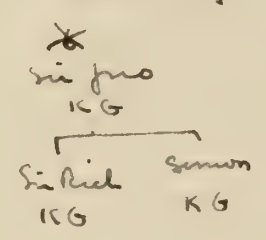 Sir Jno
K G
Sir Rich Simon
K G K G